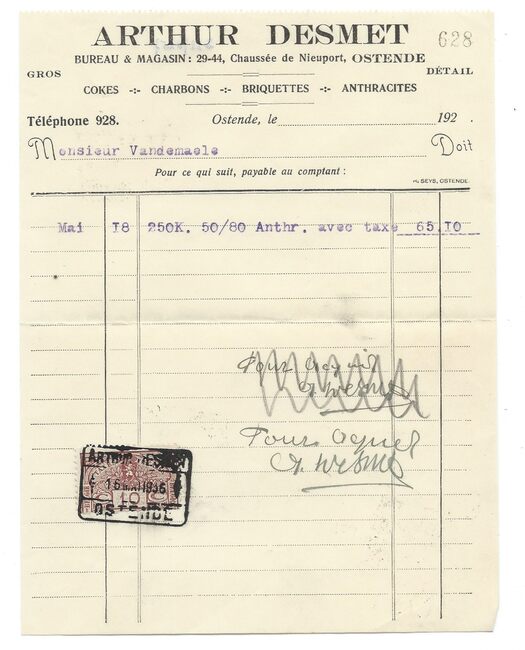 ARTHUR DESMET
628
BUREAU & MAGASIN : 29-44, Chaussée de Nieuport, OSTENDE
GROS
DÉTAIL
COKES -:- CHARBONS -:- BRIQUETTES -:- ANTHRACITES
Téléphone 928.
Ostende, le 192 .
Monsieur Vandemaele Doit
Pour ce qui suit, payable au comptant :
SEYS, OSTENDE
Mai I8 250K. 50/80 Anthr. avec taxe 65.I0
Pour Acquit
Pour Acquit
ARTHUR DESMET
10
OSTENDE